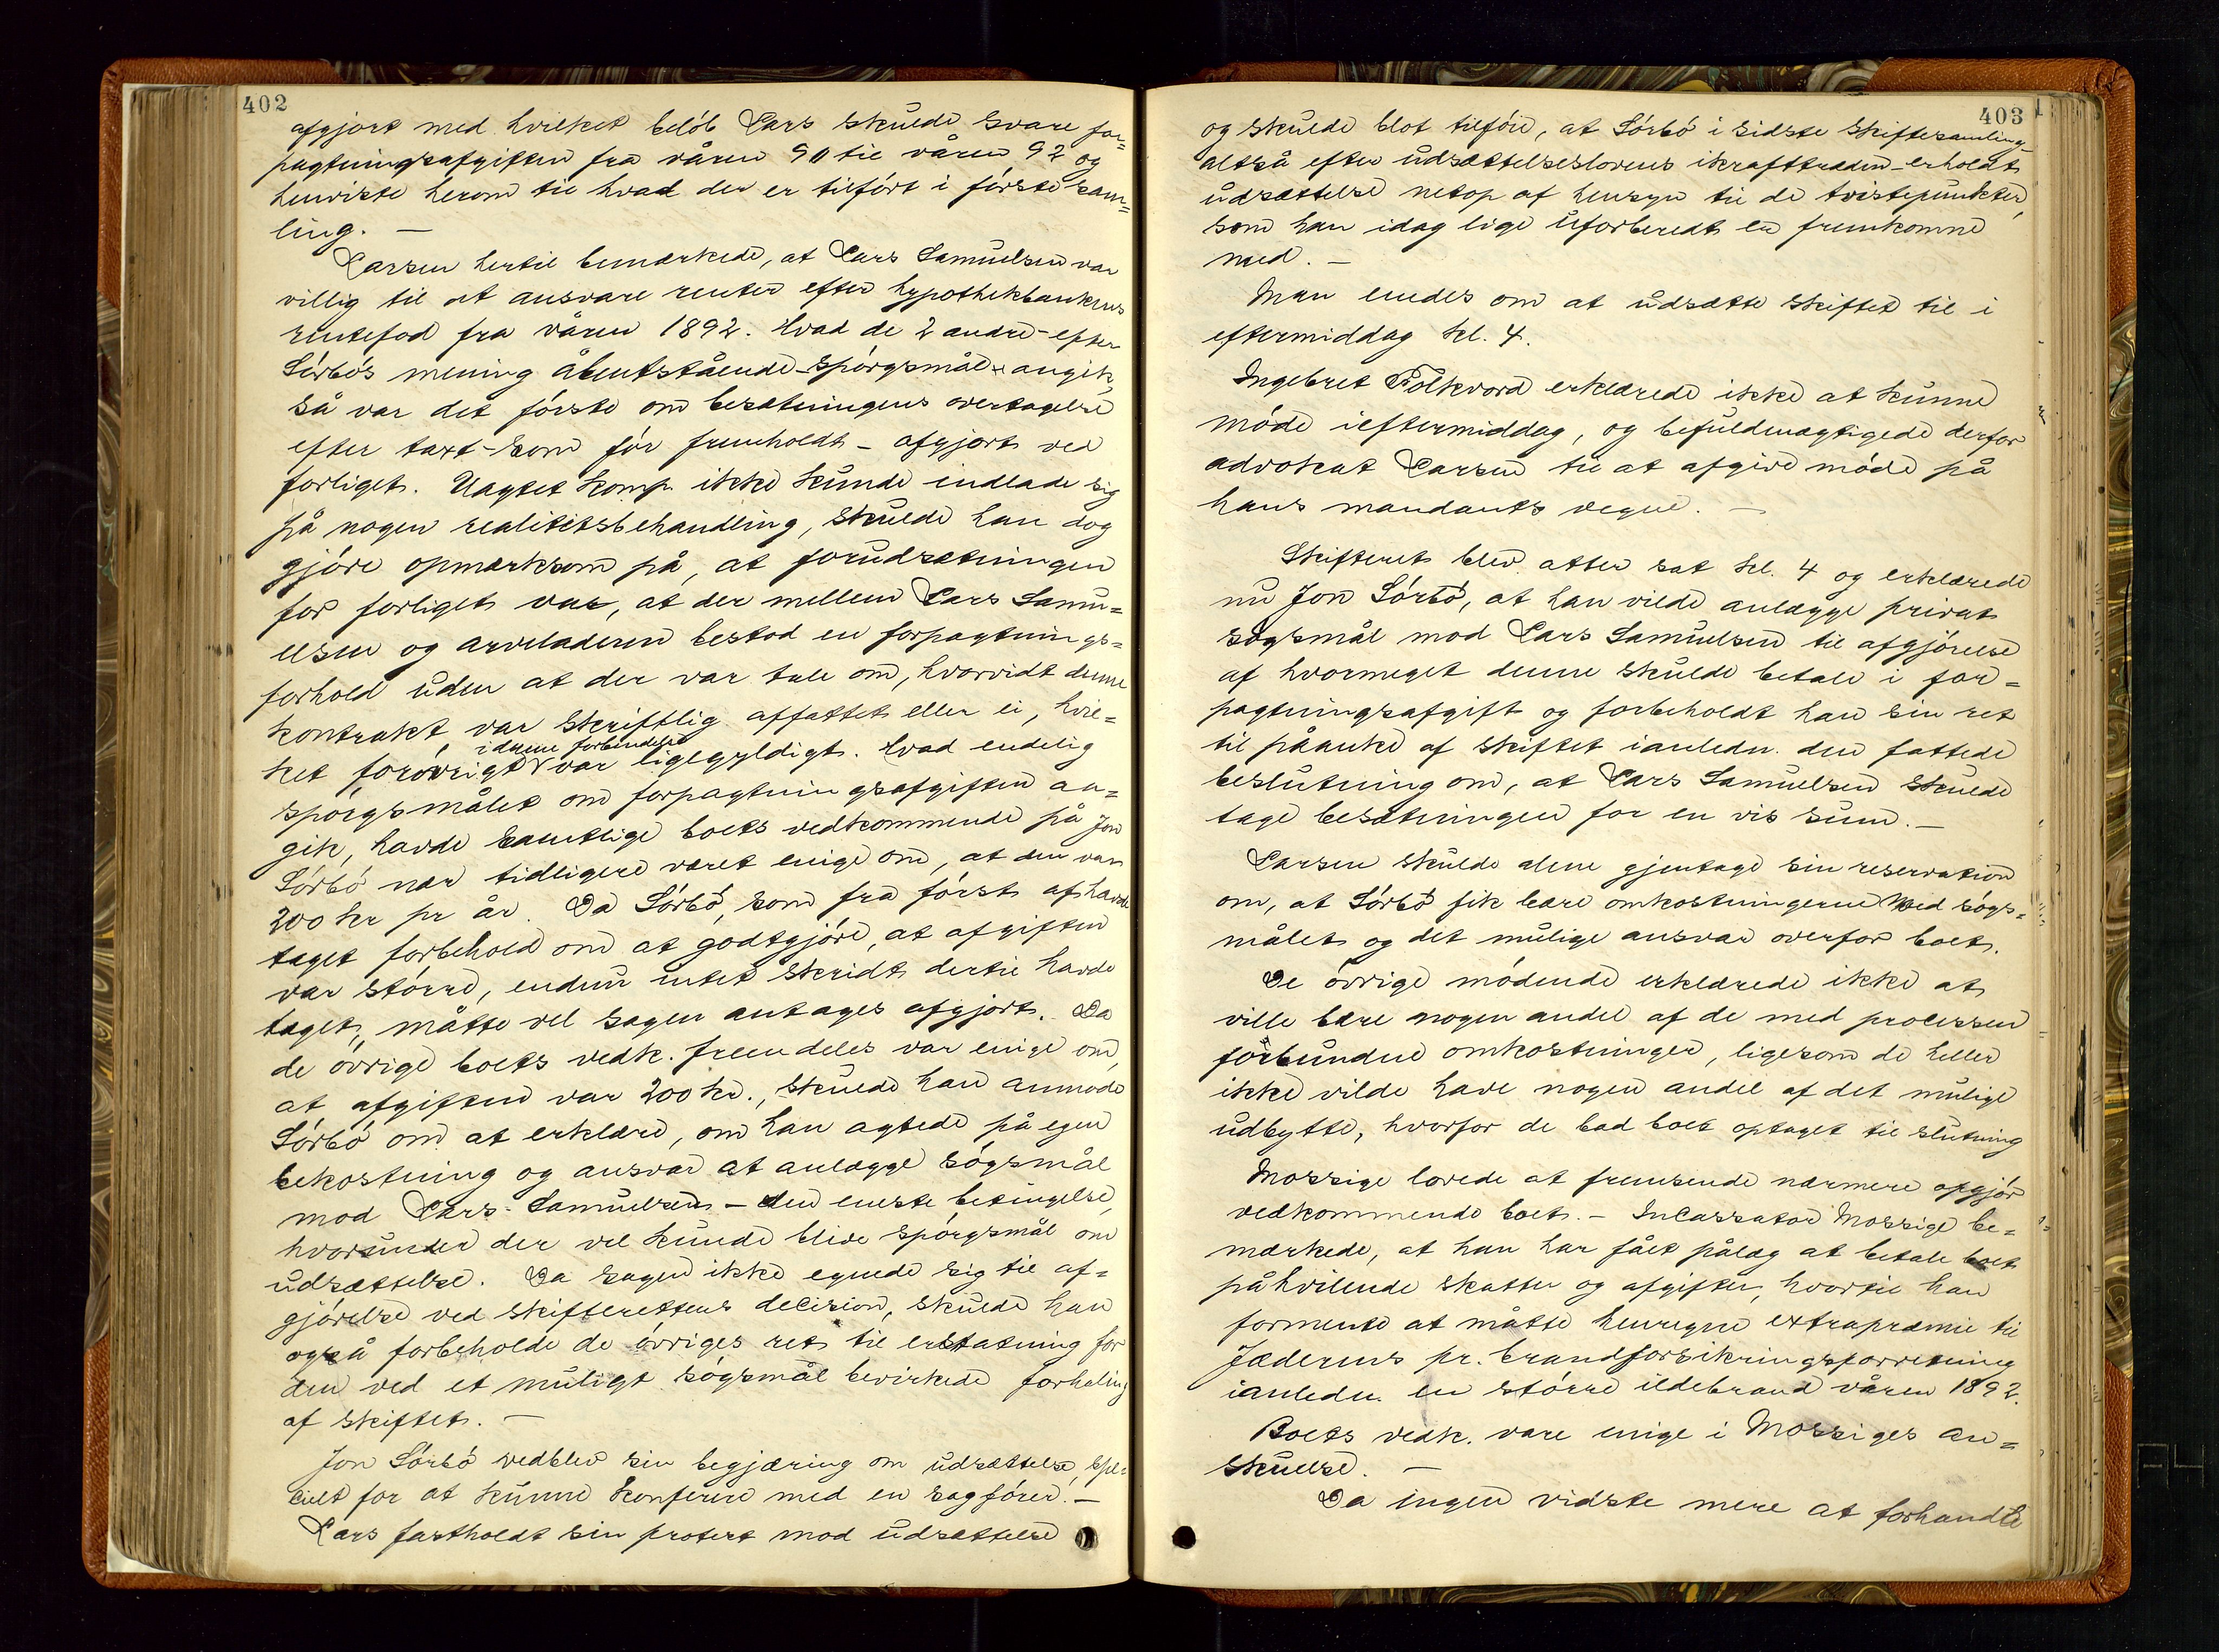 402
afgjort med hvilket beløb Lars skulde svare for=
pagtningsafgiften fra våren 90 til våren 92 og
henviste herom til hvad der er tilført i første sam=
ling. —
Larsen hertil bemærkede, at Lars Samuelsen var
villig til at ansvare renter efter hypothekbankens
rentefod fra våren 1892. Hvad de 2 andre - efter
Sørbøs mening åbentstående - spørgsmål angik,
så var det første om besætningens overtagelse
efter taxt - som før fremholdt - afgjort ved
forliget. Uagtet Komp. ikke kunde indlade sig
på nogen realitetsbehandling, skulde han dog
gjøre opmærksom på, at forudsætningen
for forliget var, at der mellem Lars Samu=
elsen og arveladeren bestod en forpagtnings=
forhold uden at der var tale om, hvorvidt denne
kontrakt var skriftlig affattet eller ei, hvil=
i denne forbindelse
ket forøvrigt var ligegyldigt. Hvad endelig
spørgsmålet om forpagtningsafgiften an=
gik, havde samtlige boets vedkommende på Jon
Sørbø nær tidligere været enige om, at den var
200 kr pr år. Da Sørbø, som fra først af havde
taget forbehold om at godtgjøre, at afgiften
var større, endnu intet skridt dertil havde
taget, måtte vel sagen antages afgjort. Da
de øvrige boets vedk. fremdeles var enige om,
at afgiften var 200 kr., skulde han anmode
Sørbø om at erklære, om han agtede på egen
bekostning og ansvar at anlægge søgsmål
mod Lars Samuelsen - den eneste betingelse,
hvorunder der vel kunde blive spørgsmål om
udsættelse. Da sagen ikke egnede sig til af=
gjørelse ved skifterettens decision, skulde han
også forbeholde de øvriges ret til erstatning for
den ved et muligt søgsmål bevirkede forhaling
af skiftet. —
Jon Sørbø vedblev sin begjæring om udsættelse, spe=
cielt for at kunne konferere med en sagfører. —
Lars fastholdt sin protest mod udsættelse
403
og skulde blot tilføie, at Sørbø i sidste skiftesamling -
altså efter udsættelseslovens ikrafttræden - erholdt
udsættelse netop af hensyn til de tvistepunkter,
som han idag lige uforberedt er fremkomne
med. —
Man enedes om at udsætte skiftet til i
eftermiddag kl. 4.
Ingebret Folkvord erklærede ikke at kunne
møde ieftermiddag, og befuldmægtigede derfor
advokat Larsen til at afgive møde på
hans mandants vegne. —
Skifteret blev atter sat kl. 4 og erklærede
nu Jon Sørbø, at han vilde anlægge privat
søgsmål mod Lars Samuelsen til afgjørelse
af hvormeget denne skulde betale i for=
pagtningsafgift og forbeholdt han sin ret
til påanke af skiftet ianledn. den fattede
beslutning om, at Lars Samuelsen skulde
tage besætningen for en vis sum. —
Larsen skulde alene gjentage sin reservation
om, at Sørbø fik bære omkostningerne ved søgs=
målet og det mulige ansvar overfor boet.
De øvrige mødende erklærede ikke at
ville bære nogen andel af de med processen
forbundne omkostninger, ligesom de heller
ikke vilde have nogen andel af det mulige
udbytte, hvorfor de bad boet optaget til slutning
Mossige lovede at fremsende nærmere opgjør
vedkommende boet. — Incassator Mossige be=
mærkede, at han har fået pålæg at betale boet
påhvilende skatter og afgifter, hvortil han
formente at måtte henregne extrapræmie til
Jæderens pr. brandforsikringsforretning
ianledn. en større ildebrand våren 1892.
Boets vedk. vare enige i Mossiges an=
skuelse. —
Da ingen vidste mere at forhandle